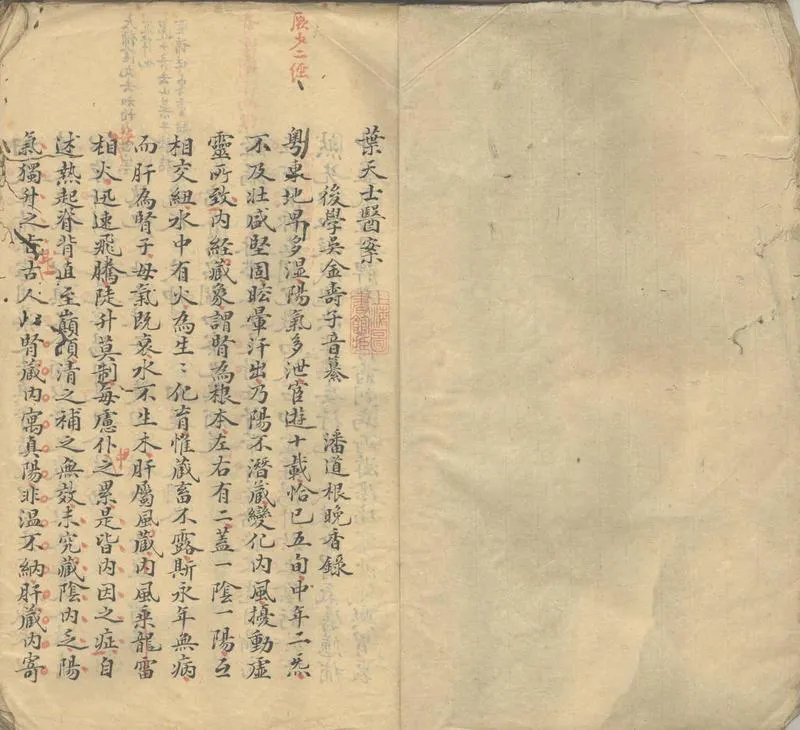 厥少二經
葉天士醫案
後學吳金壽子音纂 潘道根晚香錄
粵東地早多濕陽氣多泄宦遊十載恰已五旬中年二炁
不及壯盛堅固眩暈汗出乃陽不潛藏變化內風擾動虛
靈所致內經藏象謂腎為根本左右有二蓋一陰一陽互
相交紐水中有火為生〻化育惟藏畜不露斯永年無病
而肝為腎子母氣既衰水不生木肝屬風藏內風乘龍雷
相火迅速飛騰陡升莫制每慮仆之累是皆內因之症自
述熱起脊背直至巔頂清之補之無效未究藏陰內乏陽
氣獨升之旨古人以腎藏內寓真陽非溫不納肝藏內寄